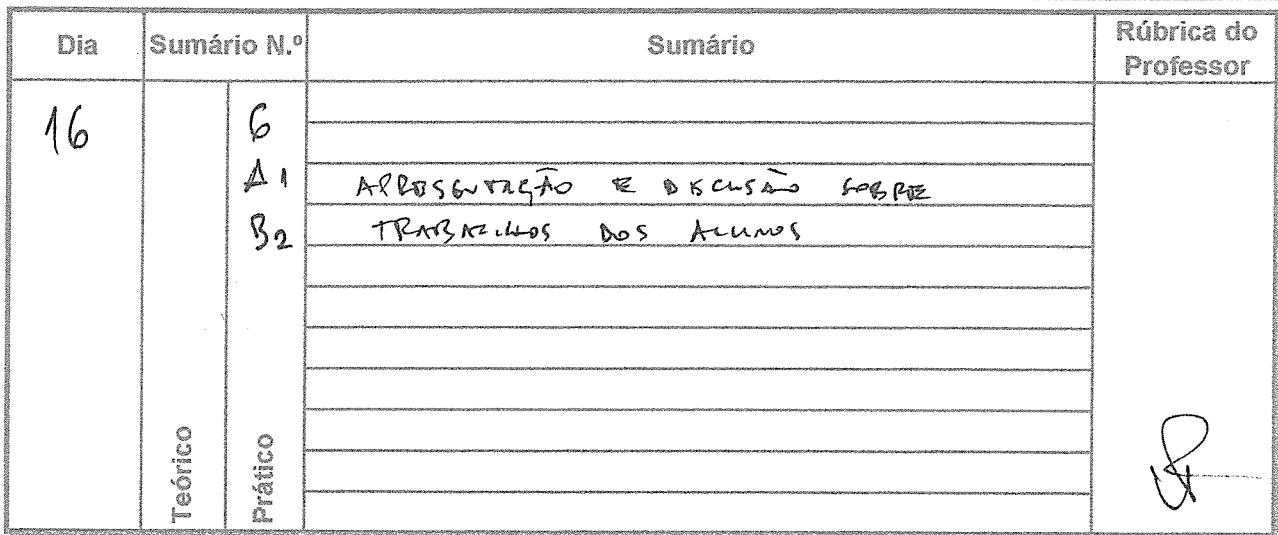 Dia Sumário N.º Sumário Rúbrica do
Professor
16 6
A1 APRESENTAÇÃO E DISCUSÃO SOBRE
B2 TRABALHOS DOS ALUNOS
Teórico Prático